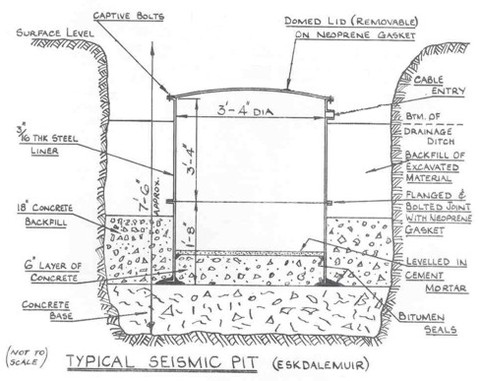 CAPTIVE BOLTS
DOMED LID (REMOVABLE)
ON NEOPRENE GASKET
SURFACE LEVEL
CABLE
ENTRY
3'-4" DIA
BTM. OF
DRAINAGE
DITCH
3/16" THK STEEL
LINER
3'-4"
BACKFILL OF
EXCAVATED
MATERIAL
7'-6"
APPROX.
FLANGED &
BOLTED JOINT
WITH NEOPRENE
GASKET
18" CONCRETE
BACKFILL
1'-8"
6" LAYER OF
CONCRETE
LEVELLED IN
CEMENT
MORTAR
CONCRETE
BASE
BITUMEN
SEALS
(NOT TO
SCALE)
TYPICAL SEISMIC PIT (ESKDALEMUIR)